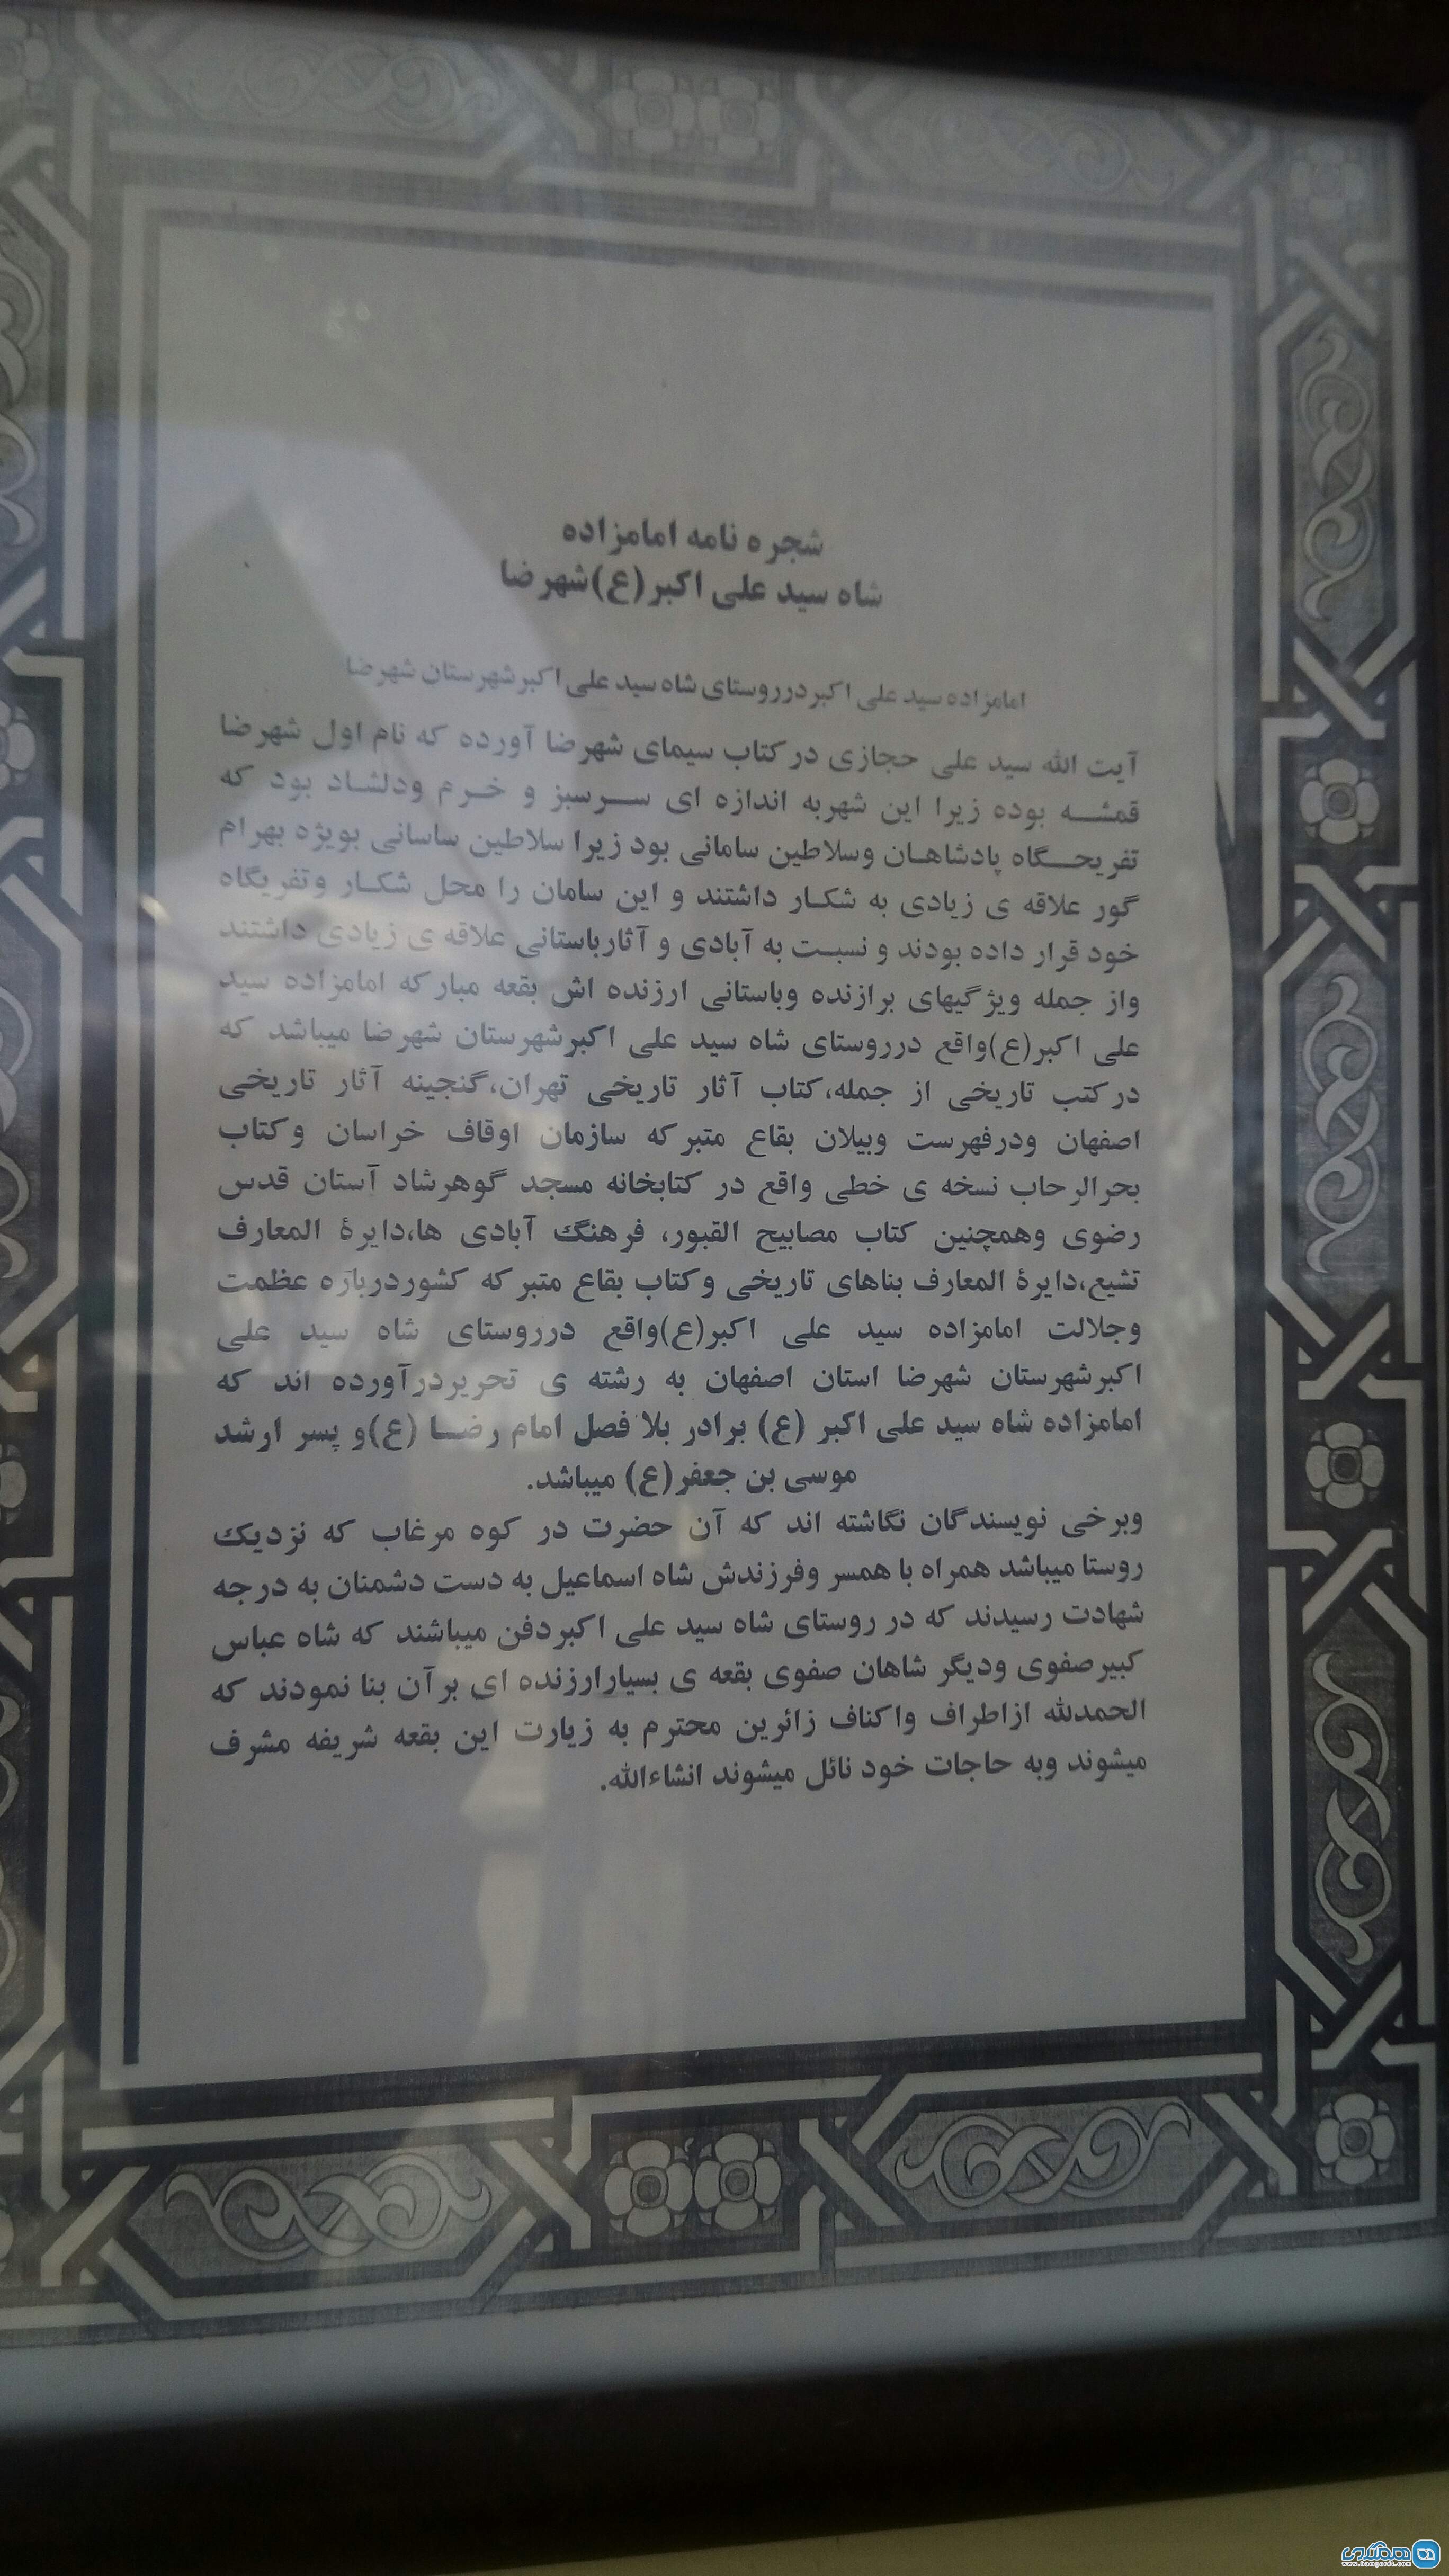 شجره نامه امامزاده
شاه سید علی اکبر(ع)شهرضا
امامزاده سید علی اکبردرروستای شاه سید علی اکبرشهرستان شهرضا
آیت الله سید علی حجازی در کتاب سیمای شهرضا آورده که نام اول شهرضا
قمشه بوده زیرا این شهربه اندازه ای سرسبز و خرم ودلشاد بود که
تفریحگاه پادشاهان وسلاطین سامانی بود زیرا سلاطین ساسانی بویژه بهرام
گور علاقه ی زیادی به شکار داشتند و این سامان را محل شکار وتفریگاه
خود قرار داده بودند و نسبت به آبادی و آثارباستانی علاقه ی زیادی داشتند
واز جمله ویژگیهای برازنده وباستانی ارزنده اش بقعه مبارکه امامزاده سید
علی اکبر(ع)واقع درروستای شاه سید علی اکبرشهرستان شهرضا میباشد که
درکتب تاریخی از جمله،کتاب آثار تاریخی تهران،گنجینه آثار تاریخی
اصفهان ودرفهرست وبیلان بقاع متبرکه سازمان اوقاف خراسان وکتاب
بحرالرحاب نسخه ی خطی واقع در کتابخانه مسجد گوهرشاد آستان قدس
رضوی وهمچنین کتاب مصابیح القبور، فرهنگ آبادی ها،دایرۀ المعارف
تشیع،دایرۀ المعارف بناهای تاریخی وکتاب بقاع متبرکه کشوردرباره عظمت
وجلالت امامزاده سید علی اکبر(ع)واقع درروستای شاه سید علی
اکبرشهرستان شهرضا استان اصفهان به رشته ی تحریردرآورده اند که
امامزاده شاه سید علی اکبر (ع) برادر بلا فصل امام رضا (ع)و پسر ارشد
موسی بن جعفر(ع) میباشد.
وبرخی نویسندگان نگاشته اند که آن حضرت در کوه مرغاب که نزدیک
روستا میباشد همراه با همسر وفرزندش شاه اسماعیل به دست دشمنان به درجه
شهادت رسیدند که در روستای شاه سید علی اکبردفن میباشند که شاه عباس
کبیرصفوی ودیگر شاهان صفوی بقعه ی بسیارارزنده ای برآن بنا نمودند که
الحمدلله ازاطراف واکناف زائرین محترم به زیارت این بقعه شریفه مشرف
میشوند وبه حاجات خود نائل میشوند انشاءالله.
همگردی
www.hamgardi.com